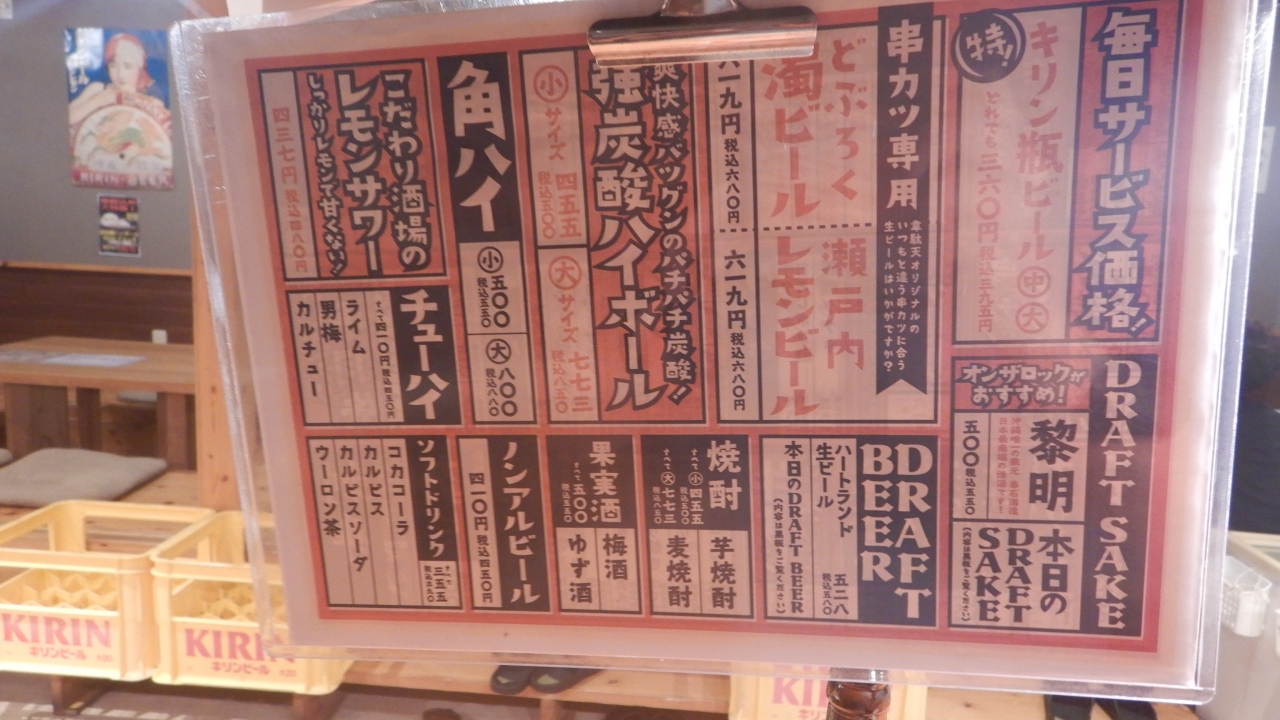 毎日サービス価格!
特!
キリン瓶ビール 中 大
どれでも 三六〇円 税込三九五円
DRAFT SAKE
オンザロックが
おすすめ!
黎明
五〇〇 税込五五〇
本日の
DRAFT
SAKE
(内容は黒板をご覧ください)
串カツ専用
韋駄天オリジナルの
いつもと違う串カツに合う
生ビールはいかがですか?
どぶろく
濁ビール
六一九円 税込六八〇円
瀬戸内
レモンビール
六一九円 税込六八〇円
DRAFT
BEER
ハートランド
生ビール
五二八
税込五八〇
本日のDRAFT BEER
(内容は黒板をご覧ください)
爽快感バツグンのバチバチ炭酸!
強炭酸ハイボール
小サイズ 四五五
税込五〇〇
大サイズ 七七三
税込八五〇
焼酎
すべて 小 四五五
税込五〇〇
大 七七三
税込八五〇
芋焼酎
麦焼酎
果実酒
すべて 五〇〇
税込五五〇
梅酒
ゆず酒
角ハイ
小 五〇〇
税込五五〇
大 八〇〇
税込八八〇
ノンアルビール
四一〇円 税込四五〇円
こだわり酒場の
レモンサワー
しっかりレモンで甘くない!
四三七円 税込四八〇円
チューハイ
すべて 四一〇円 税込四五〇円
ライム
男梅
カルチュー
ソフトドリンク
すべて 三五五
税込三九〇
コカコーラ
カルピス
カルピスソーダ
ウーロン茶
KIRIN
キリンビール
KIRIN
キリンビール
KIRIN